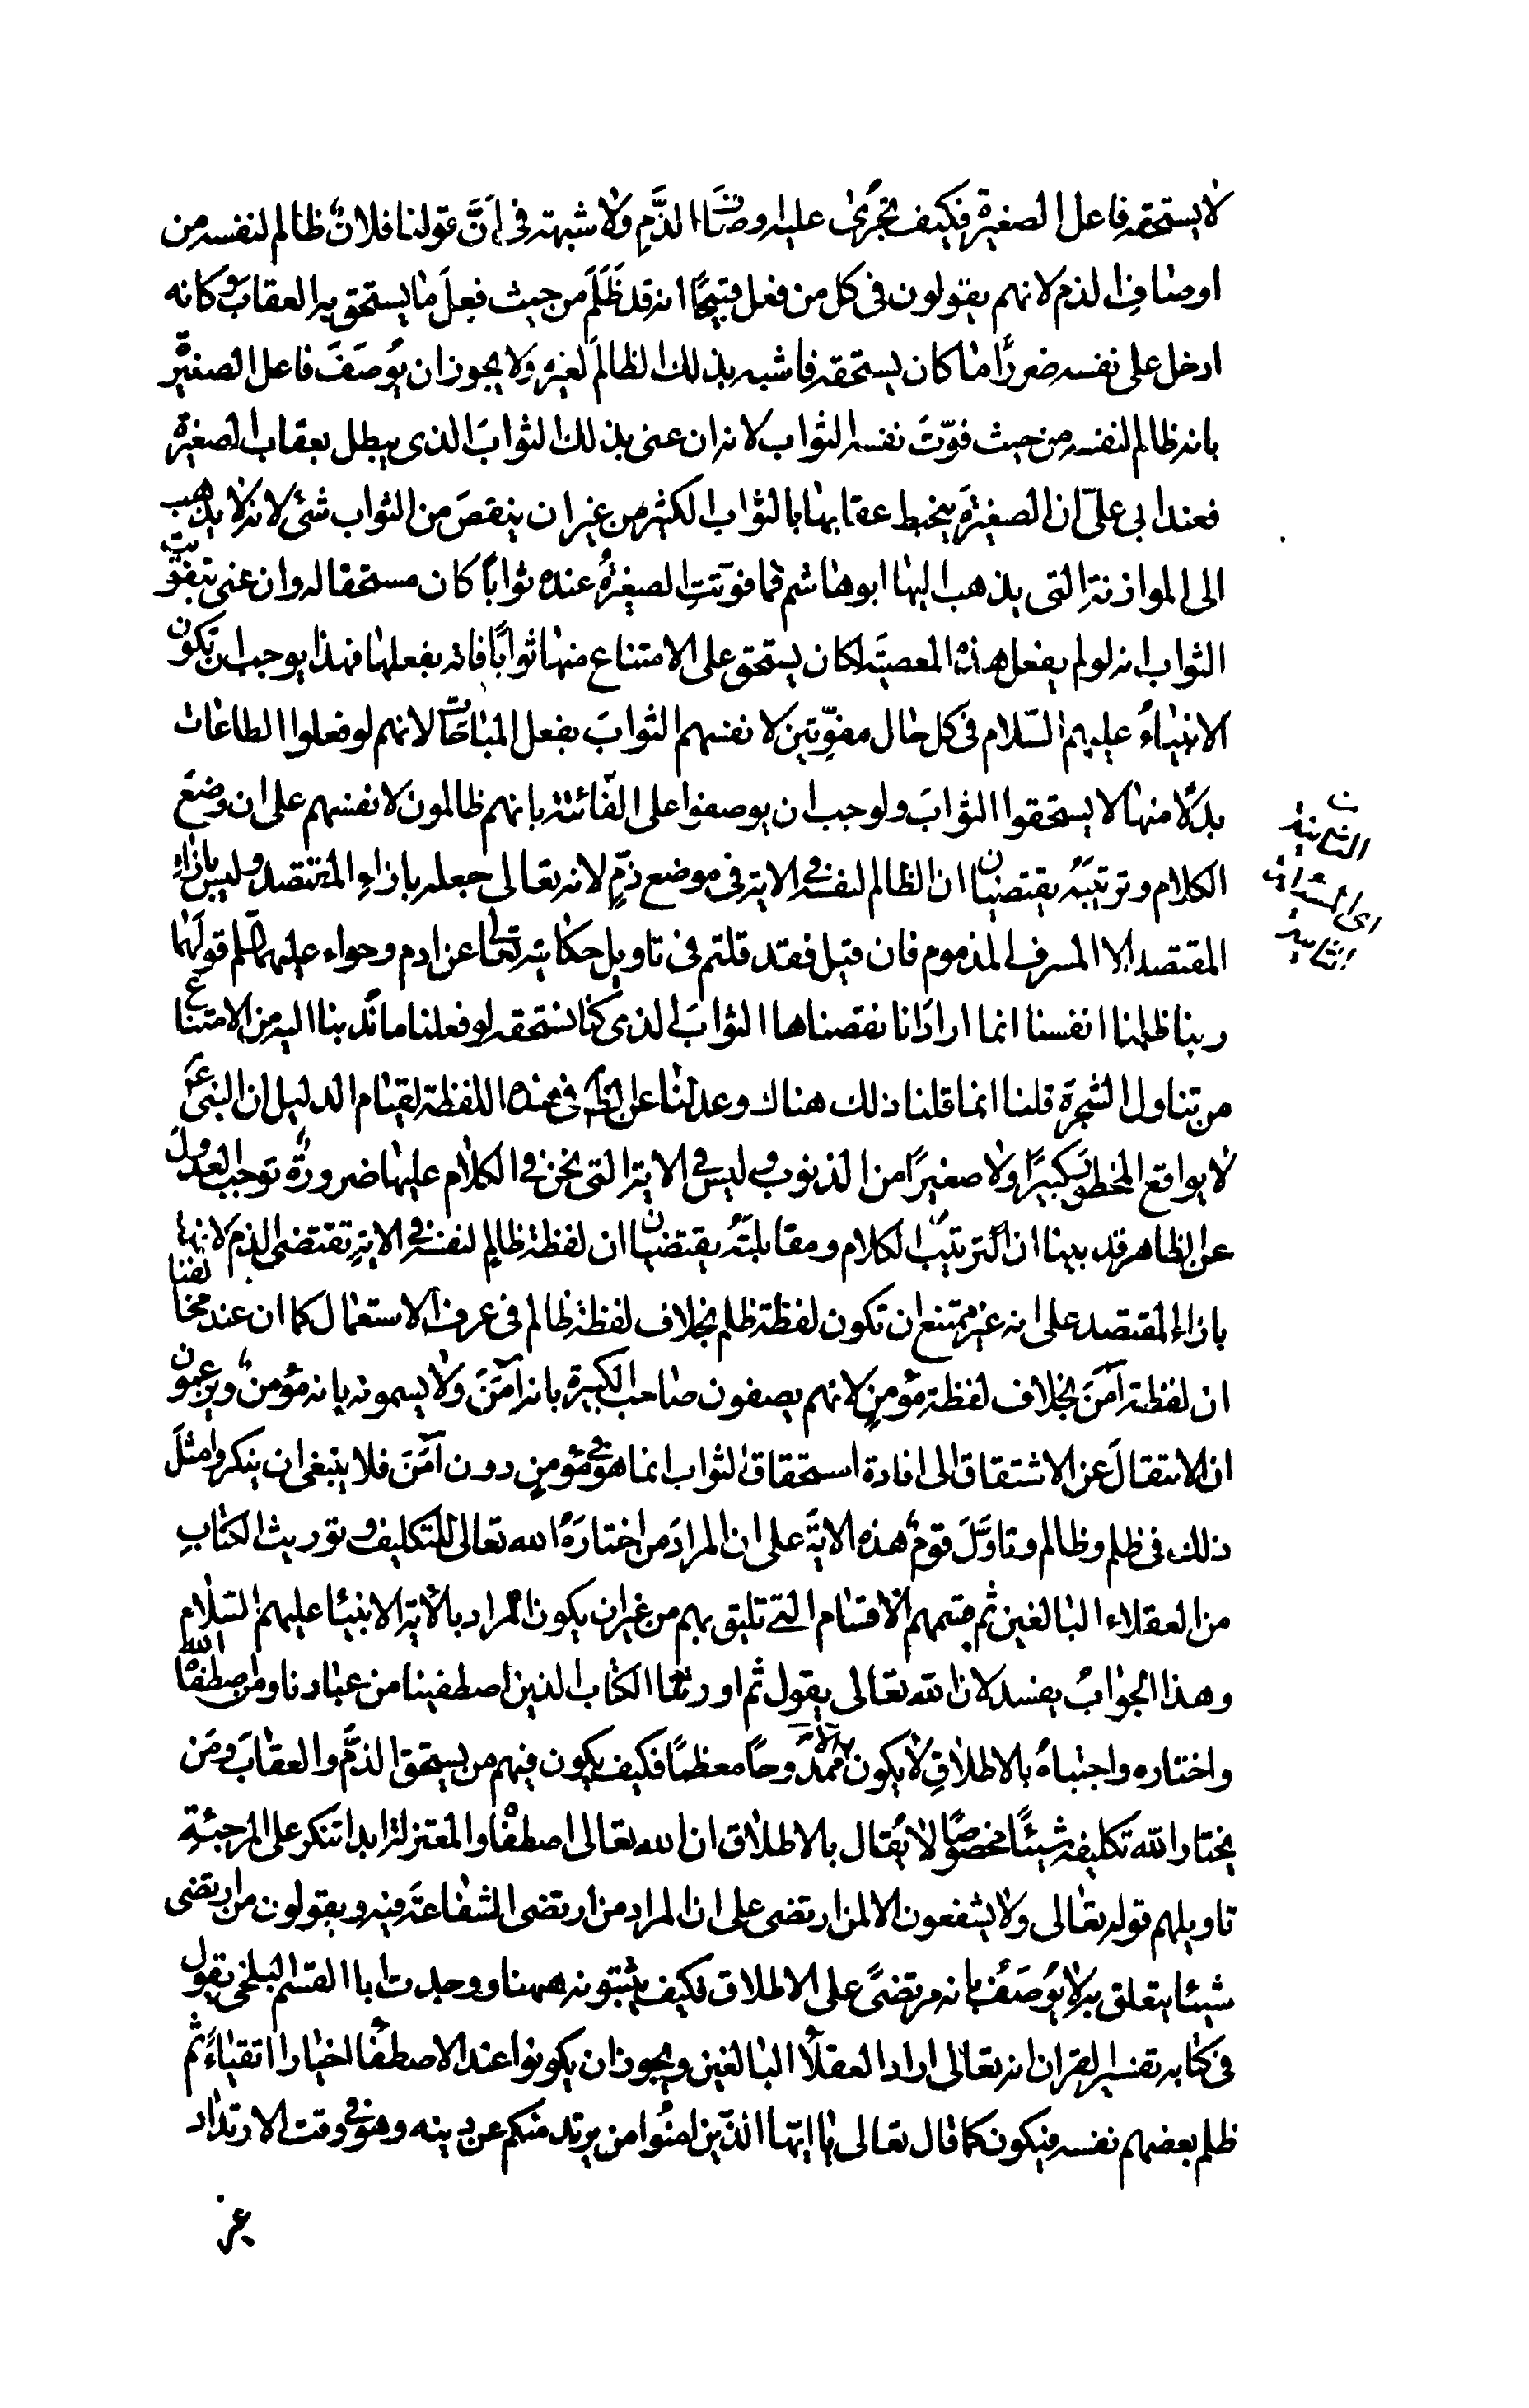 لا يستحقه فاعل الصغيرة فكيف تجرى عليه اوصاف الذم ولا شبهة فى ان قولنا فلان ظالم لنفسه من
اوصاف الذم لانهم يقولون فى كل من فعل قبيحا انه قد ظلم من حيث فعل ما يستحق به العقاب وكانه
ادخل على نفسه ضررا ما كان يستحقه فاشبه بذلك الظالم لغيره ولا يجوز ان يوصف فاعل الصغيرة
بانه ظالم لنفسه من حيث فوّت نفسه الثواب لانه ان عنى بذلك الثواب الذى يبطل بعقاب الصغيرة
فعند ابى علىّ ان الصغيرة ينحبط عقابها بالثواب الكثير من غير ان ينقص من الثواب شئ لانه لا يذهب
الى الموازنة التى يذهب اليها ابو هاشم فما فوّتت الصغيرة عنده ثوابا كان مستحقا له وان عنى بتفويت
الثواب انه لو لم يفعل هذه المعصية لكان يستحق على الامتناع منها ثوابا فاته بفعلها فهذا يوجب ان تكون
الانبياء عليهم السلام فى كل حال مفوّتين لانفسهم الثواب بفعل المباحات لانهم لو فعلوا الطاعات
بدلا منها لاستحقوا الثواب ولوجب ان يوصفوا على الفائتة بانهم ظالمون لانفسهم على ان وضع
الكلام وترتيبه يقتضيان ان الظالم لنفسه فى الاية فى موضع ذمّ لانه تعالى جعله بازاء المقتصد وليس بازاء
المقتصد الا المسرف المذموم فان قيل فقد قلتم فى تاويل حكايته تعالى عن ادم وحواء عليهما السلم قولهما
ربنا ظلمنا انفسنا انما ارادا انا نقصناها الثواب الذى كنا نستحقه لو فعلنا ما ندبنا اليه من الامتناع
من تناول الشجرة قلنا انما قلنا ذلك هناك وعدلنا عن الظاهر فى هذه اللفظة لقيام الدليل ان النبى ع
لا يواقع المحظور كبيرا ولا صغيرا من الذنوب وليس فى الاية التى نحن فى الكلام عليها ضرورة توجب العدول
عن الظاهر قد بينا ان ترتيب الكلام ومقابلته يقتضيان ان لفظة ظالم لنفسه فى الاية تقتضى الذم لانها
بازاء المقتصد على انه غير ممتنع ان تكون لفظة ظلم بخلاف لفظة ظالم فى عرف الاستعمال كما ان عند مخالفينا
ان لفظة آمن بخلاف لفظة مؤمن لانهم يصفون صاحب الكبيرة بانه آمن ولا يسمونه بانه مؤمن ويزعمون
ان الانتقال عن الاشتقاق الى افادة استحقاق الثواب انما هو فى مؤمن دون آمن فلا ينبغى ان ينكروا مثل
ذلك فى ظلم وظالم وتاوّل قوم هذه الاية على ان المراد من اختاره الله تعالى للتكليف وتوريث الكتاب
من العقلاء البالغين ثم قسمهم الاقسام التى تليق بهم من غير ان يكون المراد بالاية الانبياء عليهم السلام
وهذا الجواب يفسد لان الله تعالى يقول ثم اورثنا الكتاب الذين اصطفينا من عبادنا ومن اصطفاه الله
واختاره واجتباه بالاطلاق لا يكون الا ممدوحا معظما فكيف يكون فيهم من يستحق الذم والعقاب ومن
يختار الله تكليفه شيئا مخصوصا لا يقال بالاطلاق ان الله تعالى اصطفاه والمعتزلة ابدا تنكر على المرجئة
تاويلهم قوله تعالى ولا يشفعون الا لمن ارتضى على ان المراد من ارتضى الشفاعة فيه ويقولون من ارتضى
شيئا يتعلق به لا يوصف بانه مرتضى على الاطلاق فكيف يثبتونه ههنا ووجدت ابا القسم البلخى يقول
فى كتابه تفسير القران انه تعالى اراد العقلاء البالغين ويجوز ان يكونوا عند الاصطفاء اخيارا اتقياء ثم
ظلم بعضهم نفسه فيكون كما قال تعالى يا ايها الذين امنوا من يرتد منكم عن دينه وهو فى وقت الارتداد